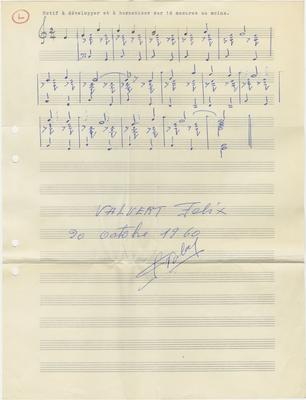 L
Motif à développer et à harmoniser sur 16 mesures au moins.
VALVERT Félix
20 octobre 1960